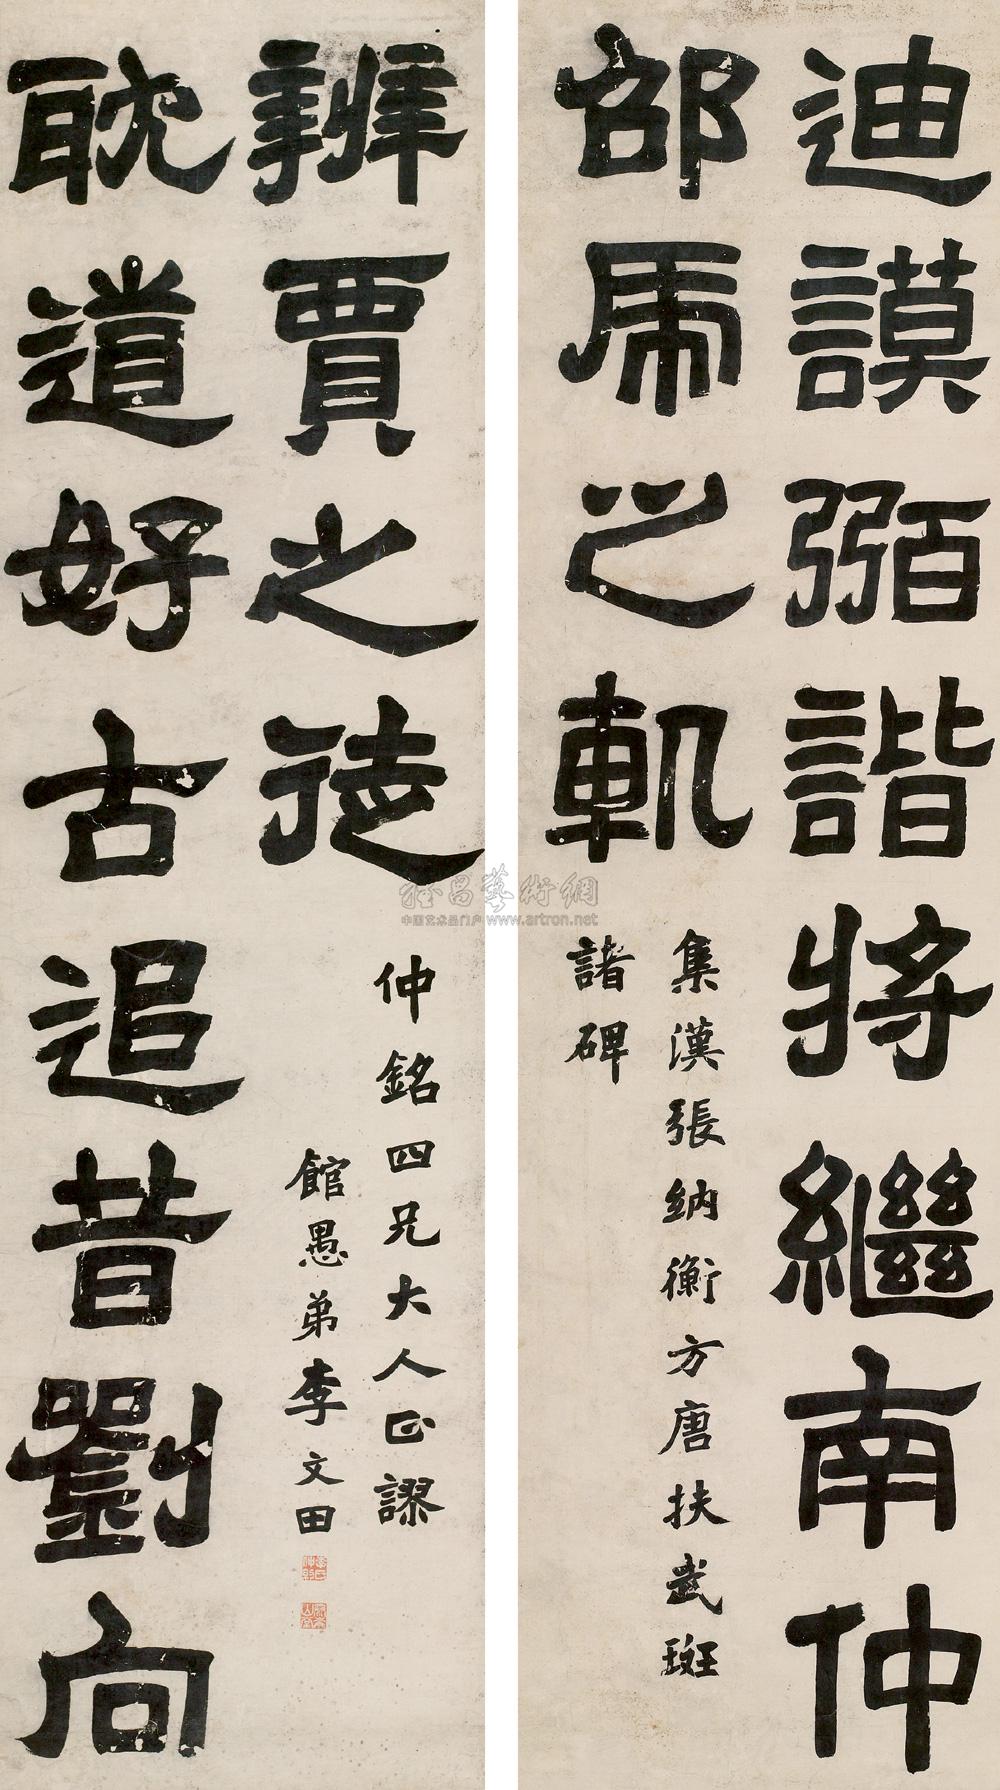 迪謨弼諧將繼南仲
邵虎之軌
集漢張納衡方唐扶武斑
諸碑
耽道好古追昔劉向
辨賈之徒
仲銘四兄大人正謬
館愚弟李文田
雅昌藝術網
中国艺术品门户 www.artron.net